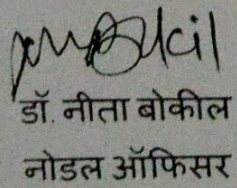 डॉ. नीता बोकील
नोडल ऑफिसर